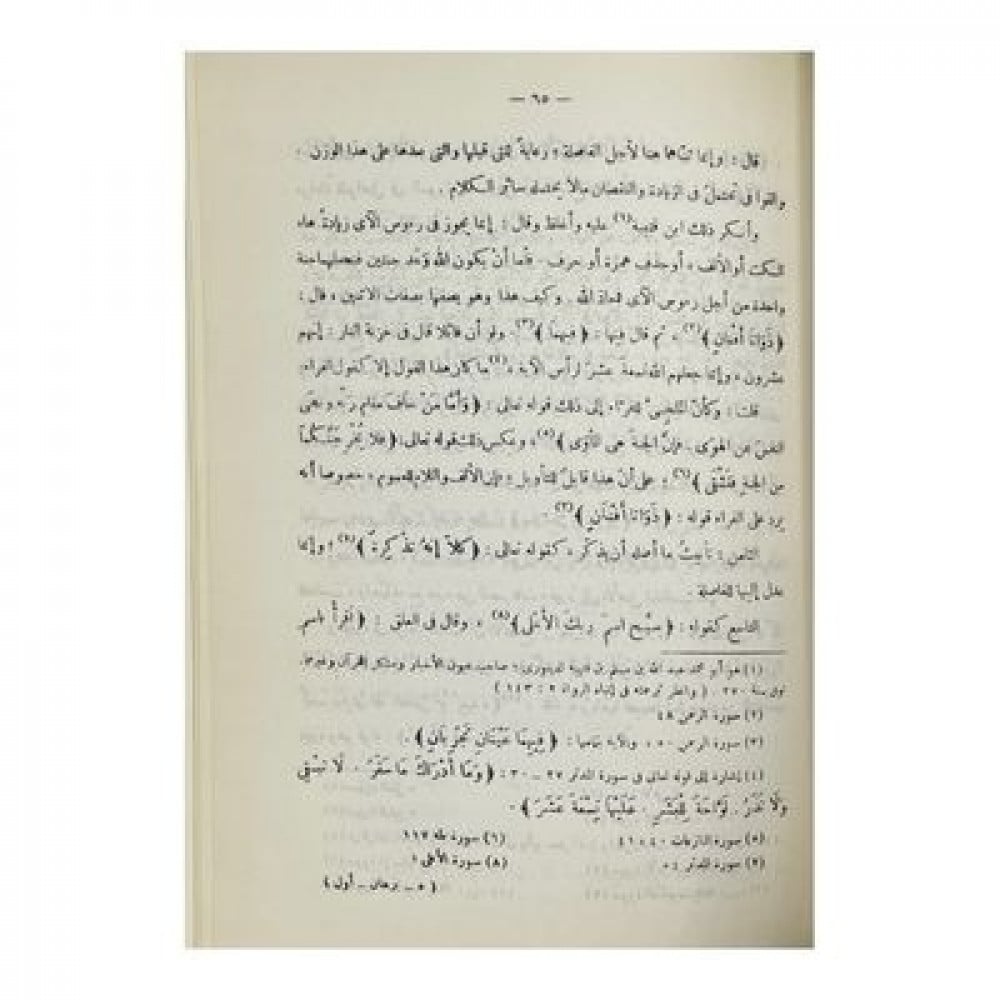 — ٦٥ —
قال : وإنما ثناهما هنا لأجل الفاصلة ، رعاية للتى قبلها والتى بعدها على هذا الوزن .
والقوافى تحتمل فى الزيادة والنقصان مالا يحتمله سائر الكلام .
وأنكر ذلك ابن قتيبة(١) عليه وأغلظ وقال : إنما يجوز فى رءوس الآى زيادة هاء
السكت أو الألف ، أو حذف همزة أو حرف . فأما أن يكون الله وَعَد جنتين فيجعلهما جنة
واحدة من أجل رءوس الآى فمعاذ الله . وكيف هذا وهو يصفها بصفات الاثنين ، قال :
﴿ ذَوَاتَا أَفْنَانٍ ﴾(٢) ، ثم قال فيها : ﴿ فِيهِمَا ﴾(٣) . ولو أن قائلا قال فى خزنة النار : إنهم
عشرون ، وإنما جعلهم الله تسعة عشر لرأس الآية ،(٤) ما كان هذا القول إلا كقول الفراء .
قلت : وكأنّ الملجئ للفرّاء إلى ذلك قوله تعالى : ﴿ وَأَمَّا مَنْ خَافَ مَقَامَ رَبِّهِ وَنَهَى
النَّفْسَ عَنِ الْهَوَى . فَإِنَّ الْجَنَّةَ هِيَ الْمَأْوَى ﴾(٥) ، وعكس ذلك قوله تعالى : ﴿ فَلَا يُخْرِجَنَّكُمَا
مِنَ الْجَنَّةِ فَتَشْقَى ﴾(٦) ؛ على أنّ هذا قابلٌ للتأويل ؛ فإن الألف واللام للعموم ، خصوصا أنه
يرد على الفراء قوله : ﴿ ذَوَاتَا أَفْنَانٍ ﴾(٢) .
الثامن : تأنيث ما أصله أن يذكر ، كقوله تعالى : ﴿ كَلَّا إِنَّهُ تَذْكِرَةٌ ﴾(٧) ؛ وإنما
عدل إليها للفاصلة .
التاسع كقوله : ﴿ سَبِّحِ اسْمَ رَبِّكَ الْأَعْلَى ﴾(٨) ، وقال فى العلق : ﴿ اقْرَأْ بِاسْمِ
(١) هو أبو محمد عبد الله بن مسلم بن قتيبة الدينورى؛ صاحب عيون الأخبار ومشكل القرآن وغيرها.
توفى سنة ٢٧٠ . ( وانظر ترجمته فى إنباه الرواة ٢ : ١٤٣ )
(٢) سورة الرحمن ٤٨
(٣) سورة الرحمن ٥٠ ، والآية بتمامها : ﴿ فِيهِمَا عَيْنَانِ تَجْرِيَانِ ﴾ .
(٤) إشارة إلى قوله تعالى فى سورة المدثر ٢٧ – ٣٠ : ﴿ وَمَا أَدْرَاكَ مَا سَقَرُ . لَا تُبْقِي
وَلَا تَذَرُ . لَوَّاحَةٌ لِلْبَشَرِ . عَلَيْهَا تِسْعَةَ عَشَرَ ﴾ .
(٥) سورة النازعات ٤٠ ، ٤١ (٦) سورة طه ١١٧
(٧) سورة المدثر ٥٤ (٨) سورة الأعلى ١
( ٥ – برهان – أول )